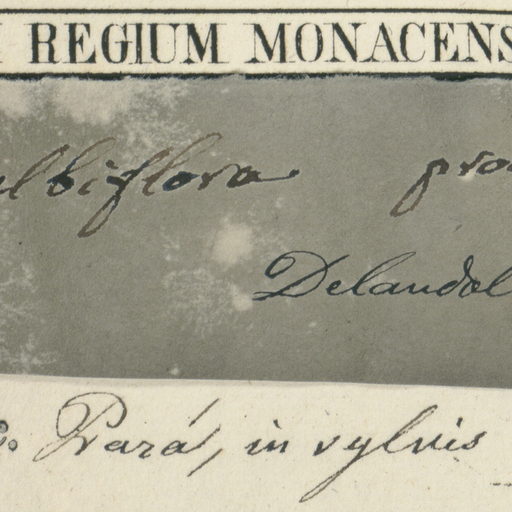 REGIUM MONACENS
albiflora pro
Delandol
Pará, in sylvis